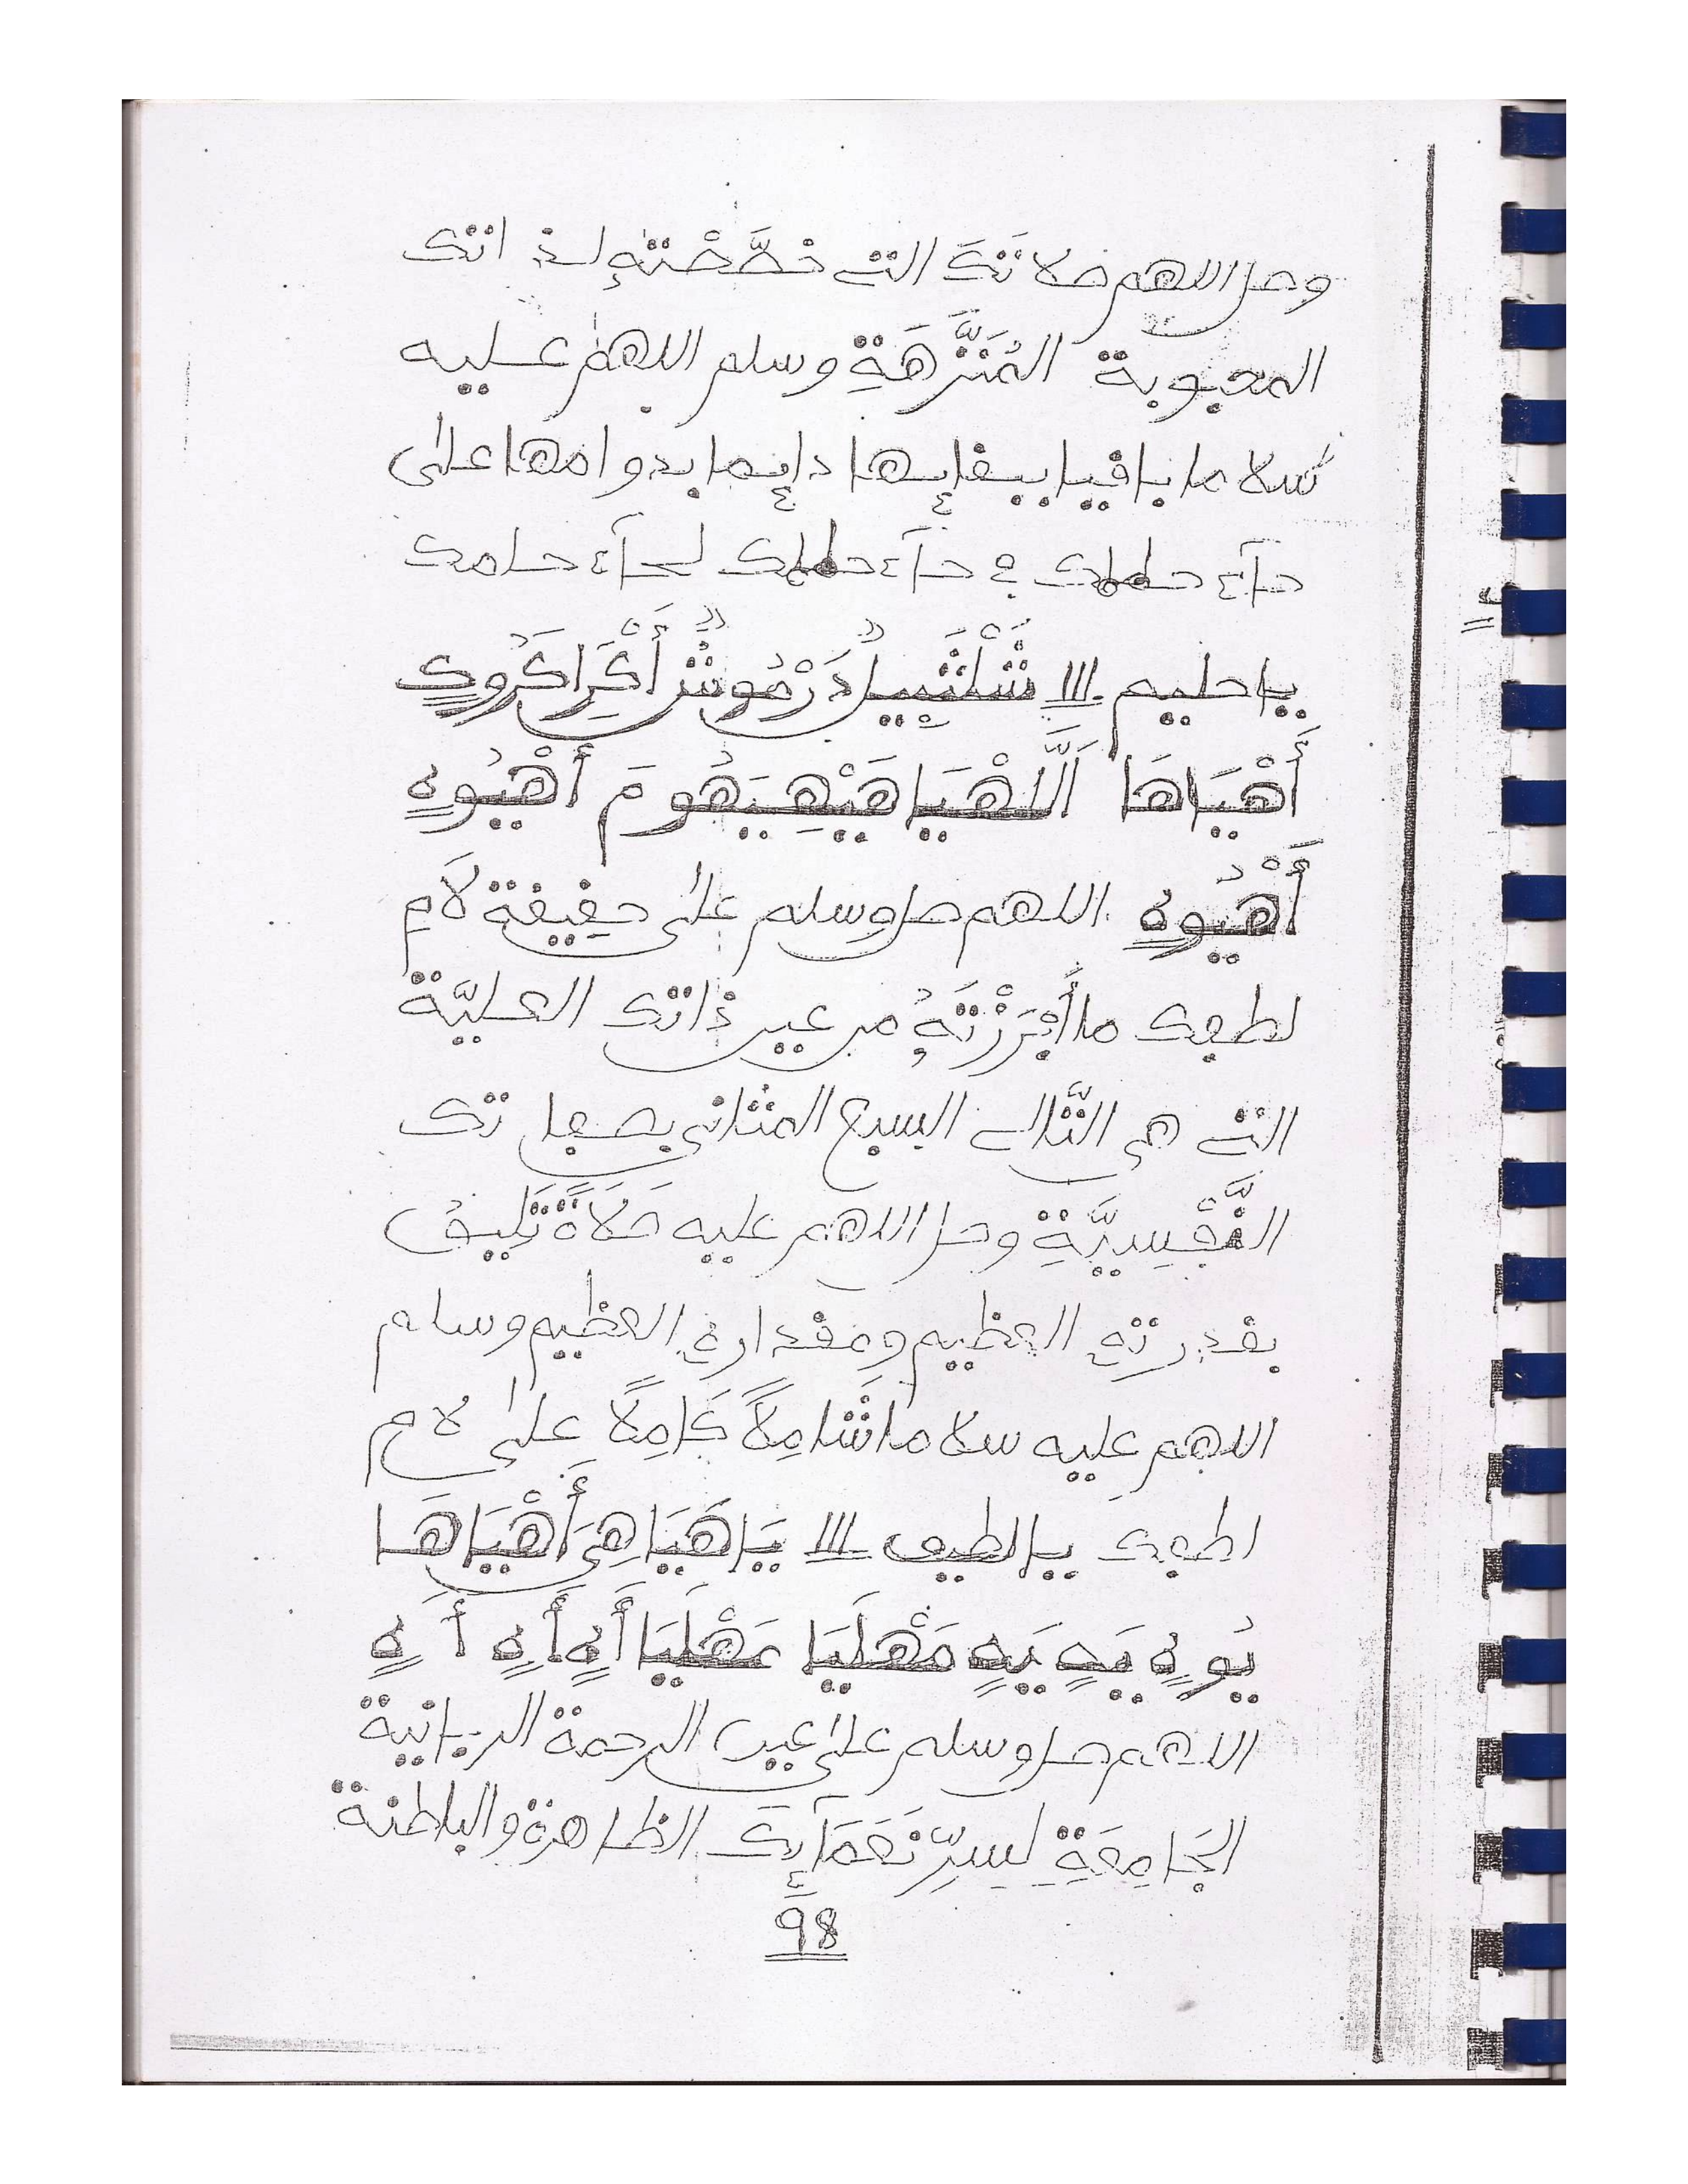 وصل اللهم صلاتَكَ التى خصَّصْتَهُ لـذاتك
المحبوبة المُنَزَّهَةِ وسلم اللهم عليه
سلاما باقيا ببقايها دايما بدوامها على
حآء حلمك حآء حلمك لحآء حلمك
يا حليم ااا شَلْتَيِيلُ دَرْمُوشُ أَكْرَاكَرُوكٍ
أَهْيَاهَا أَلَّلهْيَا هَيْهِيَهُومَ أَهْيُوهٍ
أَهْيُوهٍ اللهم صل وسلم على حقيقة لَامِ
لطفك ما أَبْرَزْتَهُ من عين ذاتك العليّة
التى هى الثَّالى السبع المثانى بصفاتك
النَّفْسِيَّةِ وصل اللهم عليه صَلَاةً تَلِيقُ
بقدرته العظيم ومقداره العظيم وسلم
اللهم عليه سلاما شَامِلاً كَامِلاً على لام
لطفك يا لطيف ااا يَاهَيَاهِىَ أَهْيَاهَا
يُوهٍ يَهٍ يَهٍ مَهْلَيَا مَهْلَيَا أَهٍ أَهٍ أَهٍ
اللهم صل وسلم على عين الرحمة الربانية
الجَامِعَةِ لِسِرِّ نَعْمَآيِكَ الظاهرة والباطنة
٩٨